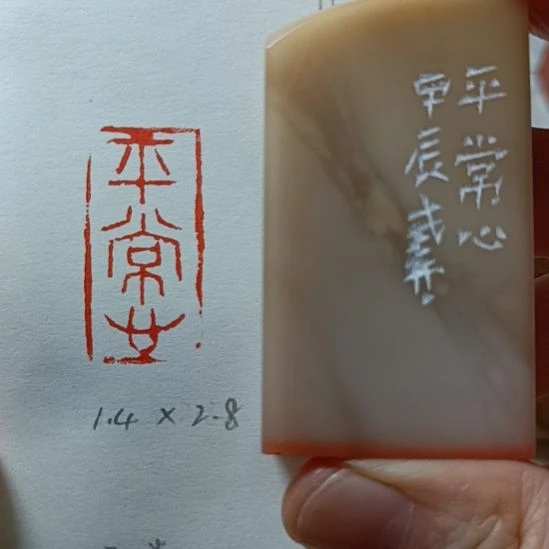 平常心
1.4 × 2.8
平常心
甲辰